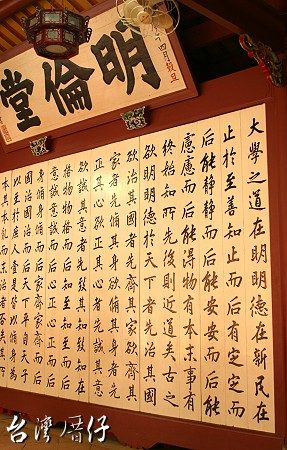 明倫堂
四月穀旦
大學之道在明明德在新民在
止於至善知止而后有定定而
后能靜靜而后能安安而后能
慮慮而后能得物有本末事有
終始知所先後則近道矣古之
欲明明德於天下者先治其國
欲治其國者先齊其家欲齊其
家者先脩其身欲脩其身者先
正其心欲正其心者先誠其意
欲誠其意者先致其知致知在
格物物格而后知至知至而后
意誠意誠而后心正心正而后
身脩身脩而后家齊家齊而后
國治國治而后天下平自天子
以至於庶人壹是皆以脩身為
本其本亂而末治者否矣其所
台灣厝仔